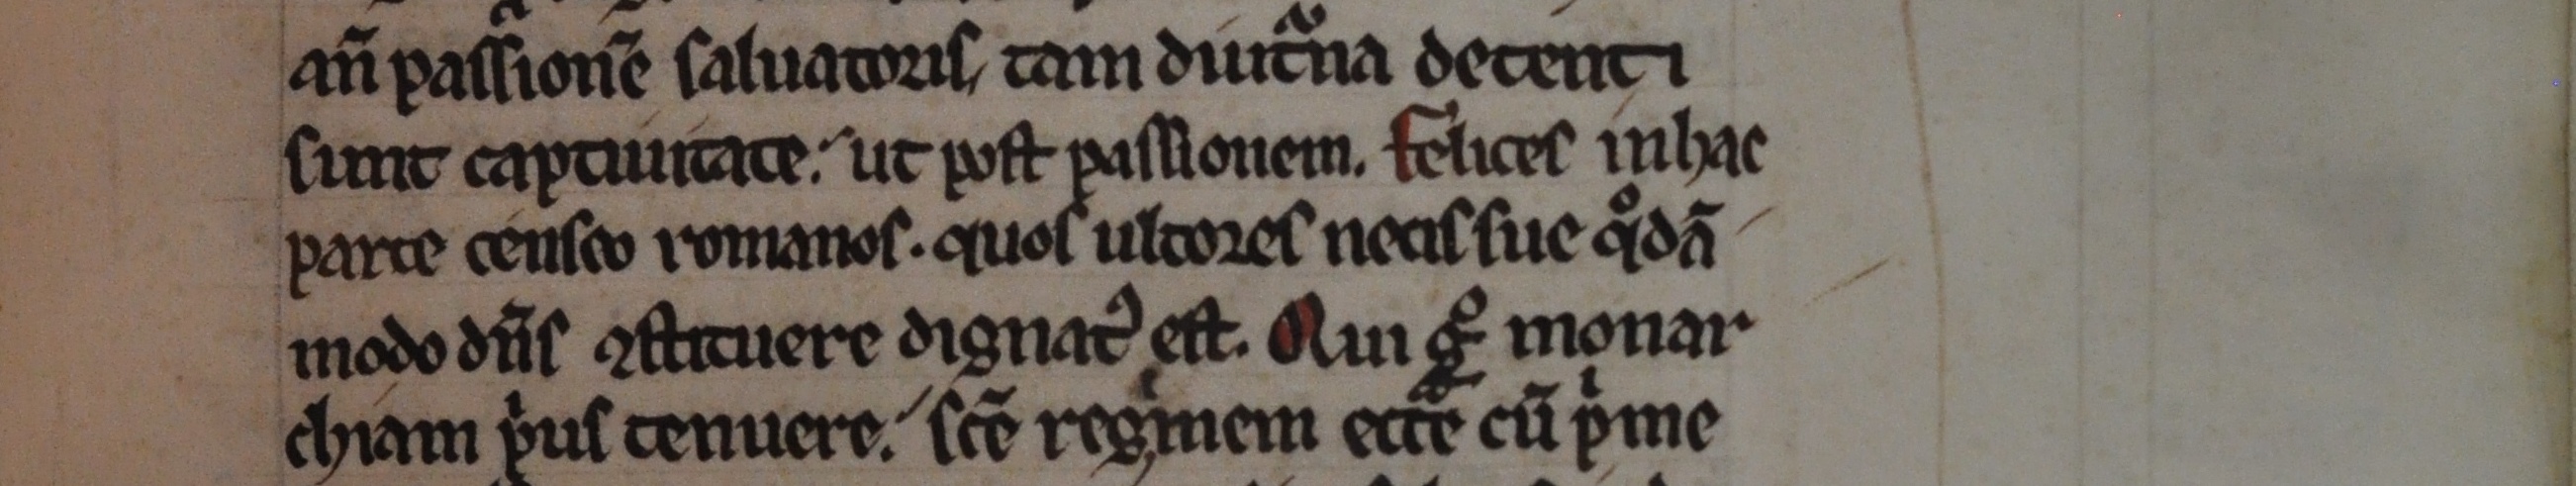 an̄ passionē saluatoris, tam diutᷓna detenti
sunt captiuitate. ut post passionem. Felices in hac
parte censeo romanos. quos ultores necis sue qͦdā
modo dn̄s ꝯstituere dignatꝰ est. Qui gͦ monar
chiam pͥus tenuere. scē regimem ecctᷓe cū pͥme